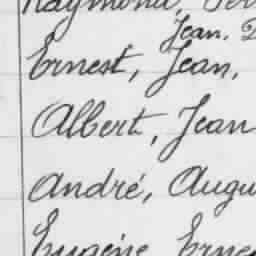 Raymond,
Jean.
Ernest, Jean,
Albert, Jean
André, Augu
Eugène Erne